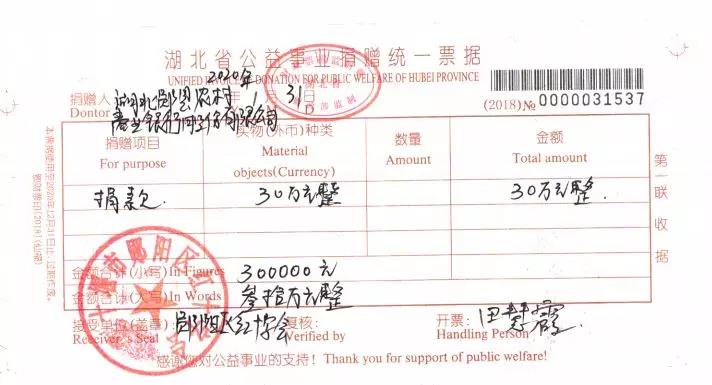 湖北省公益事业捐赠统一票据
UNIFIED INVOICE DONATION FOR PUBLIC WELFARE OF HUBEI PROVINCE
2020年 1月 31日
捐赠人
Dontor
湖北郧县农村
商业银行股份有限公司
(2018) № 0000031537
捐赠项目
For purpose
实物(外币)种类
Material
objects(Currency)
数量
Amount
金额
Total amount
捐款 30万元整 30万元整
金额合计(小写)In Figures 300000元
金额合计(大写)In Words 叁拾万元整
接受单位(盖章)
Receiver's Seal
郧阳区红十字会
复核:
Verified by
开票:
Handling Person
田慧霞
感谢您对公益事业的支持! Thank you for support of public welfare!
第一联 收据
本票据使用至2020年12月31日止,过期作废。
十堰市郧阳区红十字会